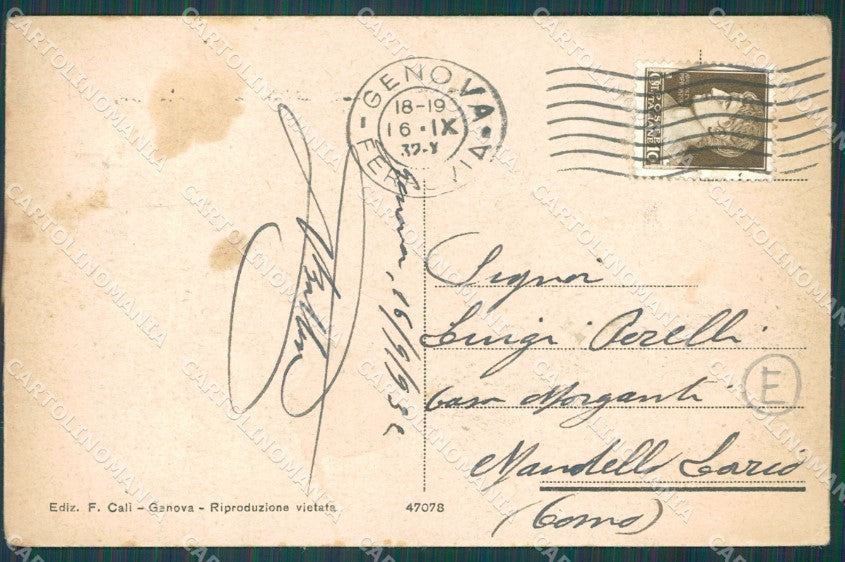 GENOVA
FERROVIA
18-19
16·IX
32-X
10 C
Genova, 16/9/932
Signor
Luigi Perelli
Casa Morganti
Mandello Lario
(Como)
E
Ediz. F. Calì - Genova - Riproduzione vietata
47078
CARTOLINOMANIA